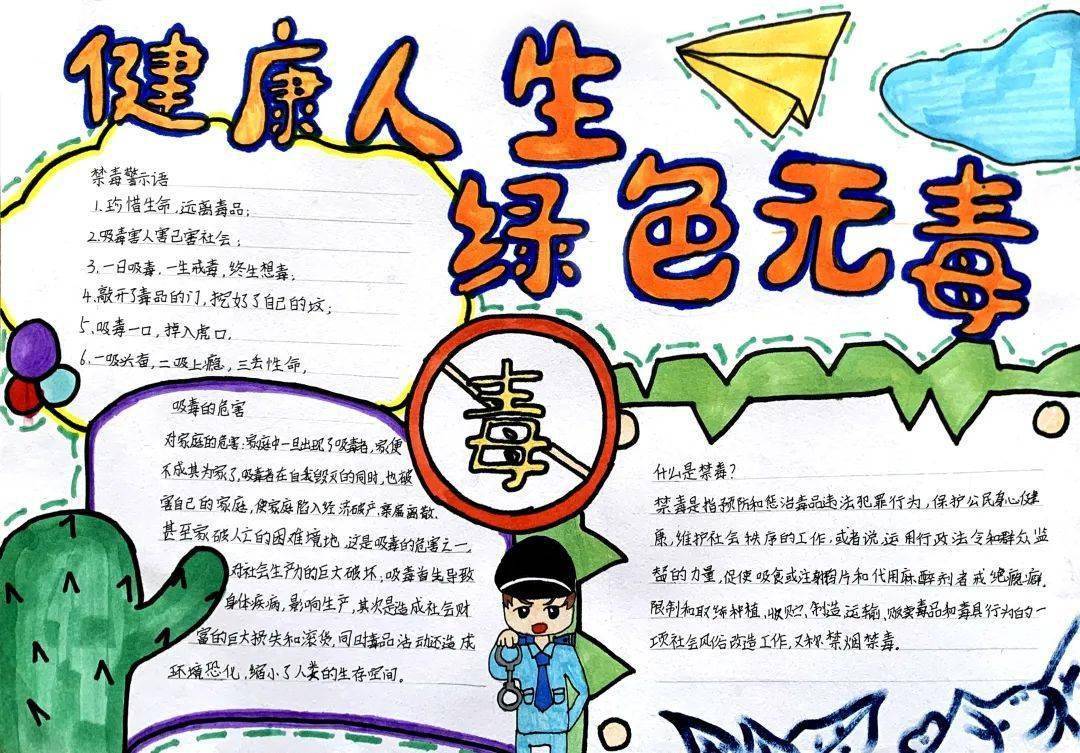 健康人生
绿色无毒
禁毒警示语
1.珍惜生命,远离毒品;
2.吸毒害人害己害社会;
3.一日吸毒,一生戒毒,终生想毒;
4.敲开了毒品的门,挖好了自己的坟;
5.吸毒一口,掉入虎口.
6.一吸兴奋,二吸上瘾,三丢性命,
吸毒的危害
对家庭的危害:家庭中一旦出现了吸毒者,家便
不成其为家了,吸毒者在自我毁灭的同时,也破
害自己的家庭,使家庭陷入经济破产,亲属离散.
甚至家破人亡的困难境地,这是吸毒的危害之一.
对社会生产力的巨大破坏:吸毒首先导致
身体疾病,影响生产,其次是造成社会财
富的巨大损失和浪费,同时毒品活动还造成
环境恐化,缩小了人类的生存空间。
毒
什么是禁毒?
禁毒是指预防和惩治毒品违法犯罪行为,保护公民身心健
康,维护社会秩序的工作,或者说运用行政法令和群众监
督的力量,促使吸食或注射鸦片和代用麻醉剂者戒绝瘾癖.
限制和取缔种植,收购,制造运输,贩卖毒品和毒具行为的一
项社会风俗改造工作,又称禁烟禁毒。